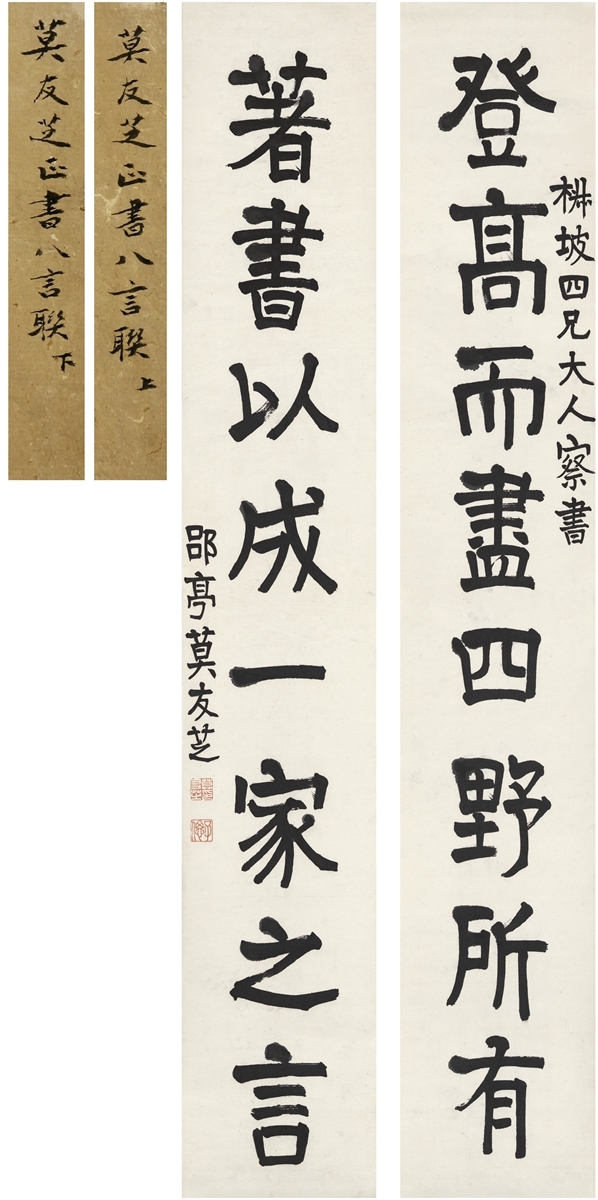 坡四兄大人察書
登高而盡四野所有
著書以成一家之言
郘亭莫友芝
莫友芝正書八言聯上
莫友芝正書八言聯下